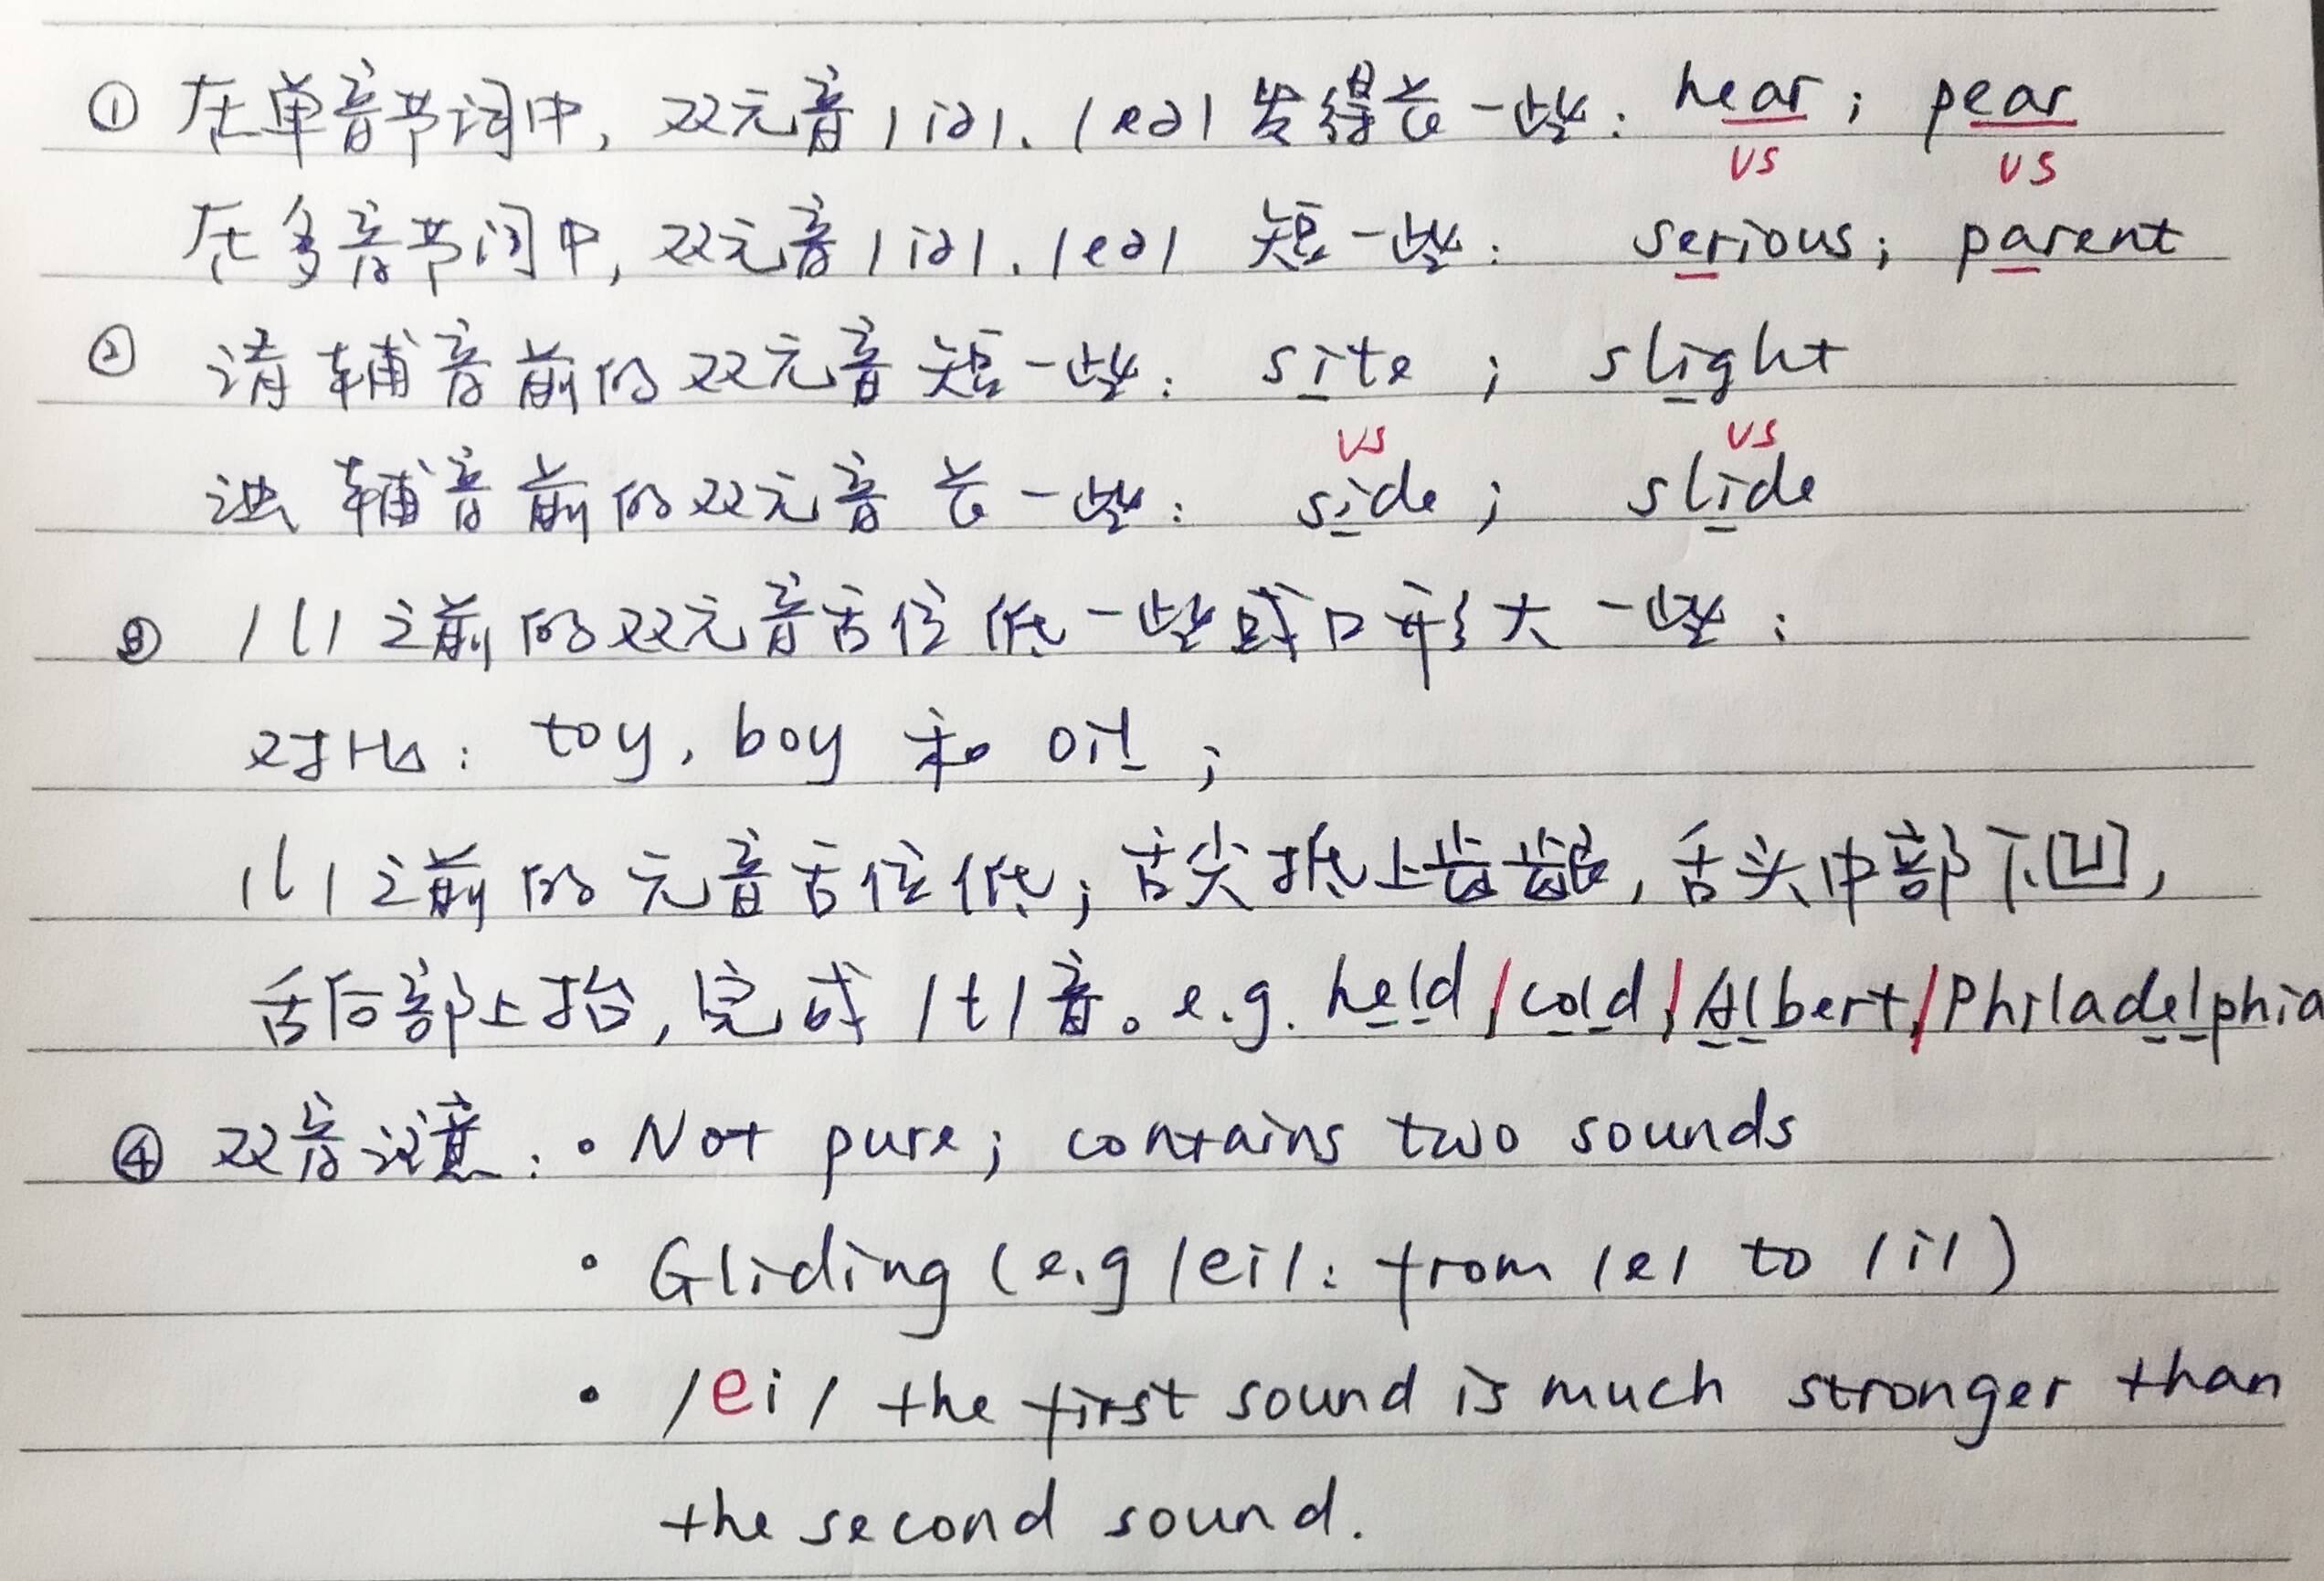 ① 在单音节词中，双元音/iə/、/eə/发得长一些：hear；pear
vs vs
在多音节词中，双元音/iə/、/eə/ 短一些：serious；parent
② 清辅音前的双元音短一些：site；slight
vs vs
浊辅音前的双元音长一些：side；slide
③ /l/之前的双元音舌位低一些或口形大一些：
对比：toy，boy 和 oil；
/l/之前的元音舌位低；舌尖抵上齿龈，舌头中部下凹，
舌后部上抬，完成/ɫ/音。e.g. held/cold/Albert/Philadelphia
④ 双音注意：• Not pure; contains two sounds
• Gliding (e.g /ei/: from /e/ to /i/)
• /ei/ the first sound is much stronger than
the second sound.